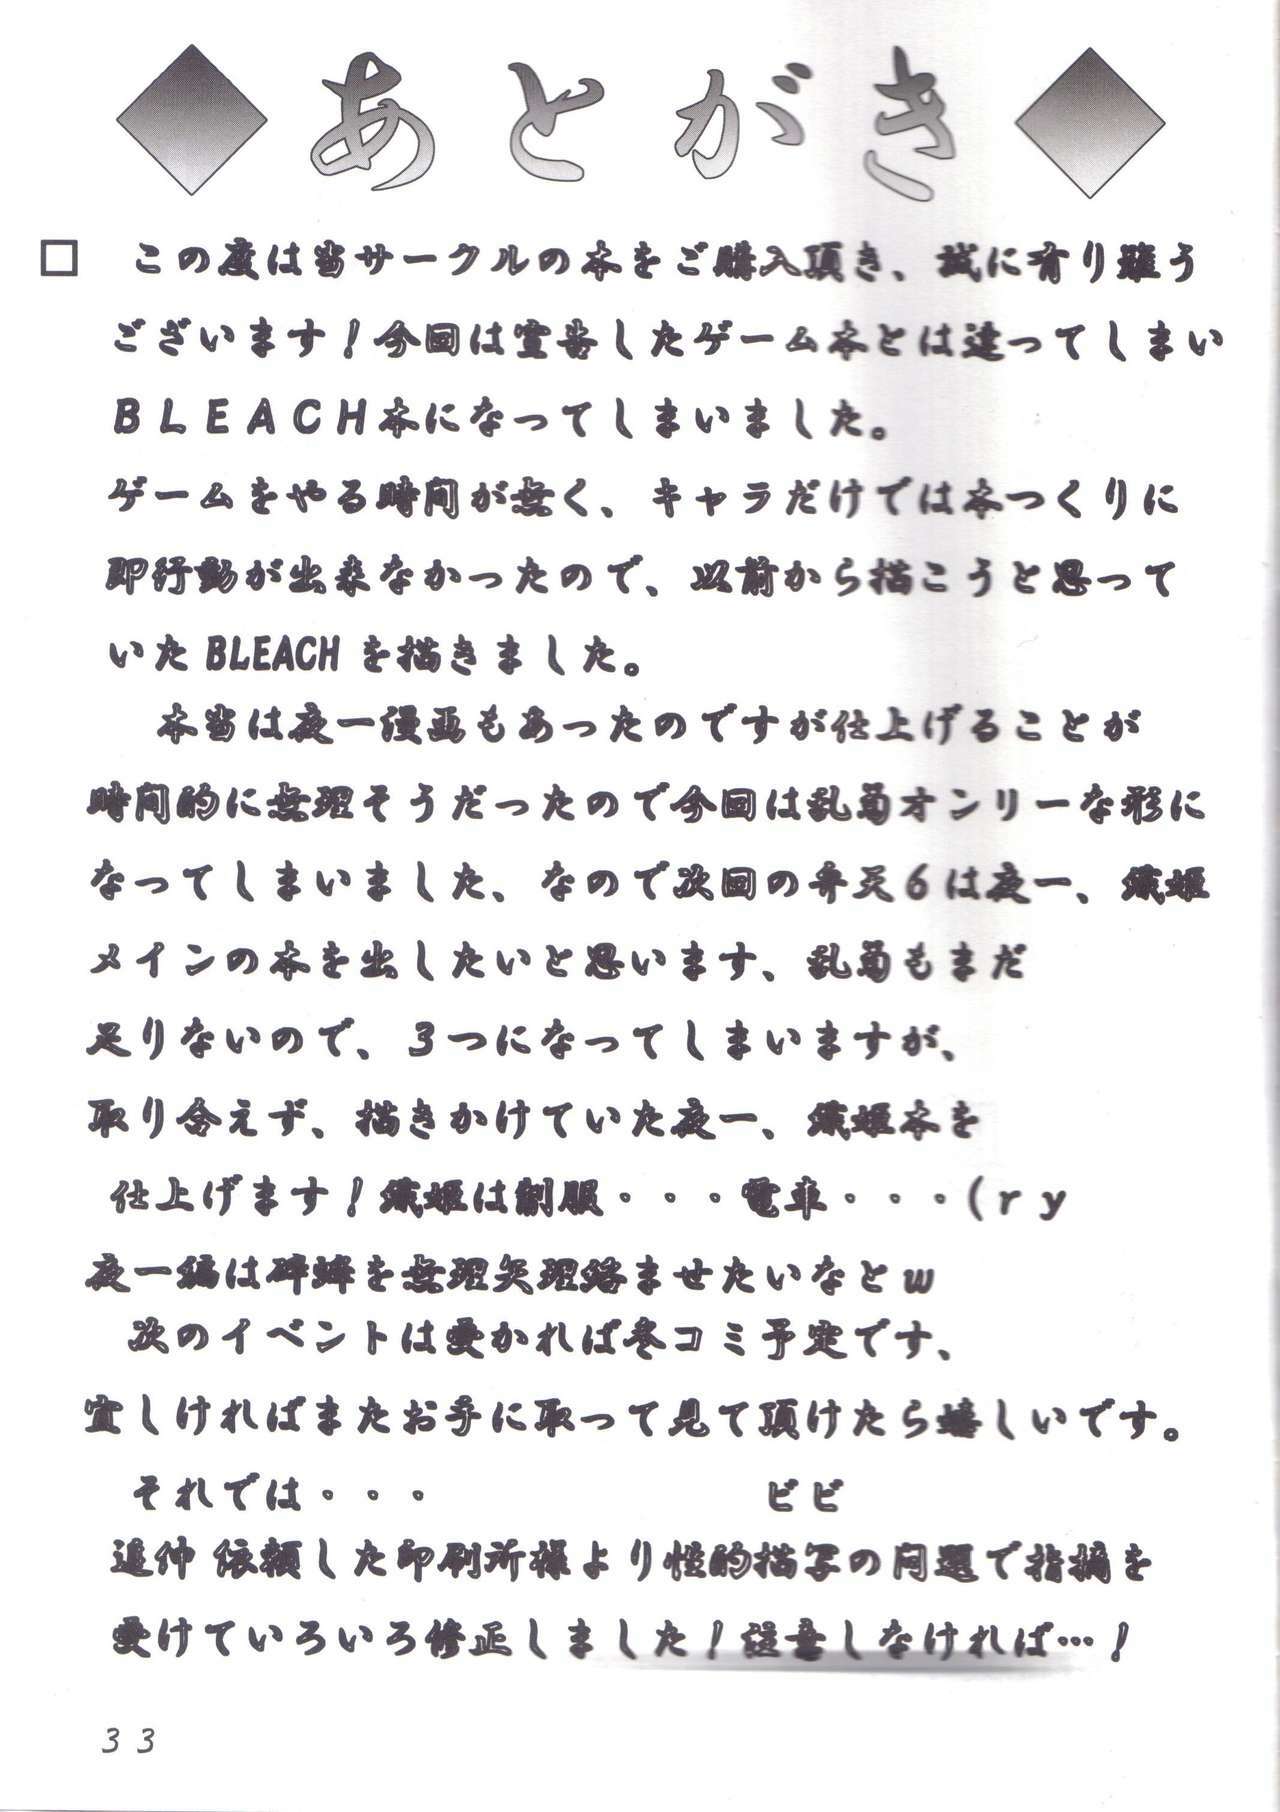 あとがき
□ この度は当サークルの本をご購入頂き、誠に有り難う
ございます！今回は宣告したゲーム本とは違ってしまい
ＢＬＥＡＣＨ本になってしまいました。
ゲームをやる時間が無く、キャラだけでは本つくりに
即行動が出来なかったので、以前から描こうと思って
いたBLEACHを描きました。
本当は夜一漫画もあったのですが仕上げることが
時間的に無理そうだったので今回は乱菊オンリーな形に
なってしまいました、なので次回の弁天６は夜一、織姫
メインの本を出したいと思います、乱菊もまだ
足りないので、３つになってしまいますが、
取り合えず、描きかけていた夜一、織姫本を
仕上げます！織姫は制服・・・電車・・・（ｒｙ
夜一編は砕蜂を無理矢理絡ませたいなとｗ
次のイベントは受かれば冬コミ予定です、
宜しければまたお手に取って見て頂けたら嬉しいです。
それでは・・・ ビビ
追伸 依頼した印刷所様より性的描写の問題で指摘を
受けていろいろ修正しました！注意しなければ…！
３３